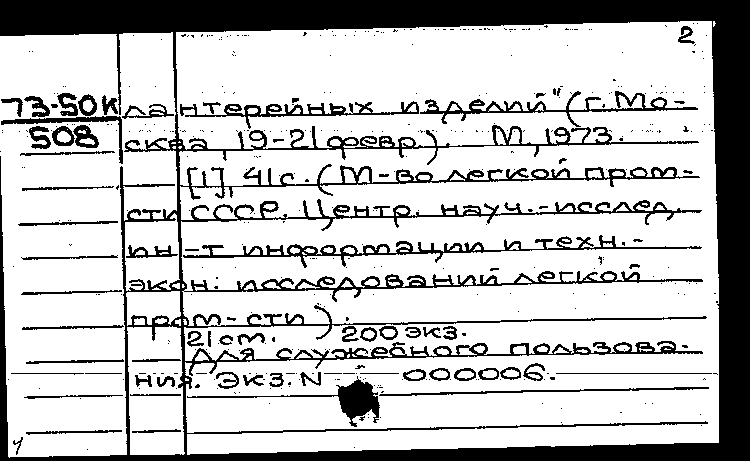 2
73-50К лантерейных изделий" (г. Мо-
508 сква, 19-21 февр.). М., 1973.
[1], 41 с. (М-во легкой пром-
сти СССР. Центр. науч.-исслед.
ин-т информации и техн.-
экон. исследований легкой
пром-сти).
21 см. 200 экз.
Для служебного пользова-
ния. Экз. N 000006.